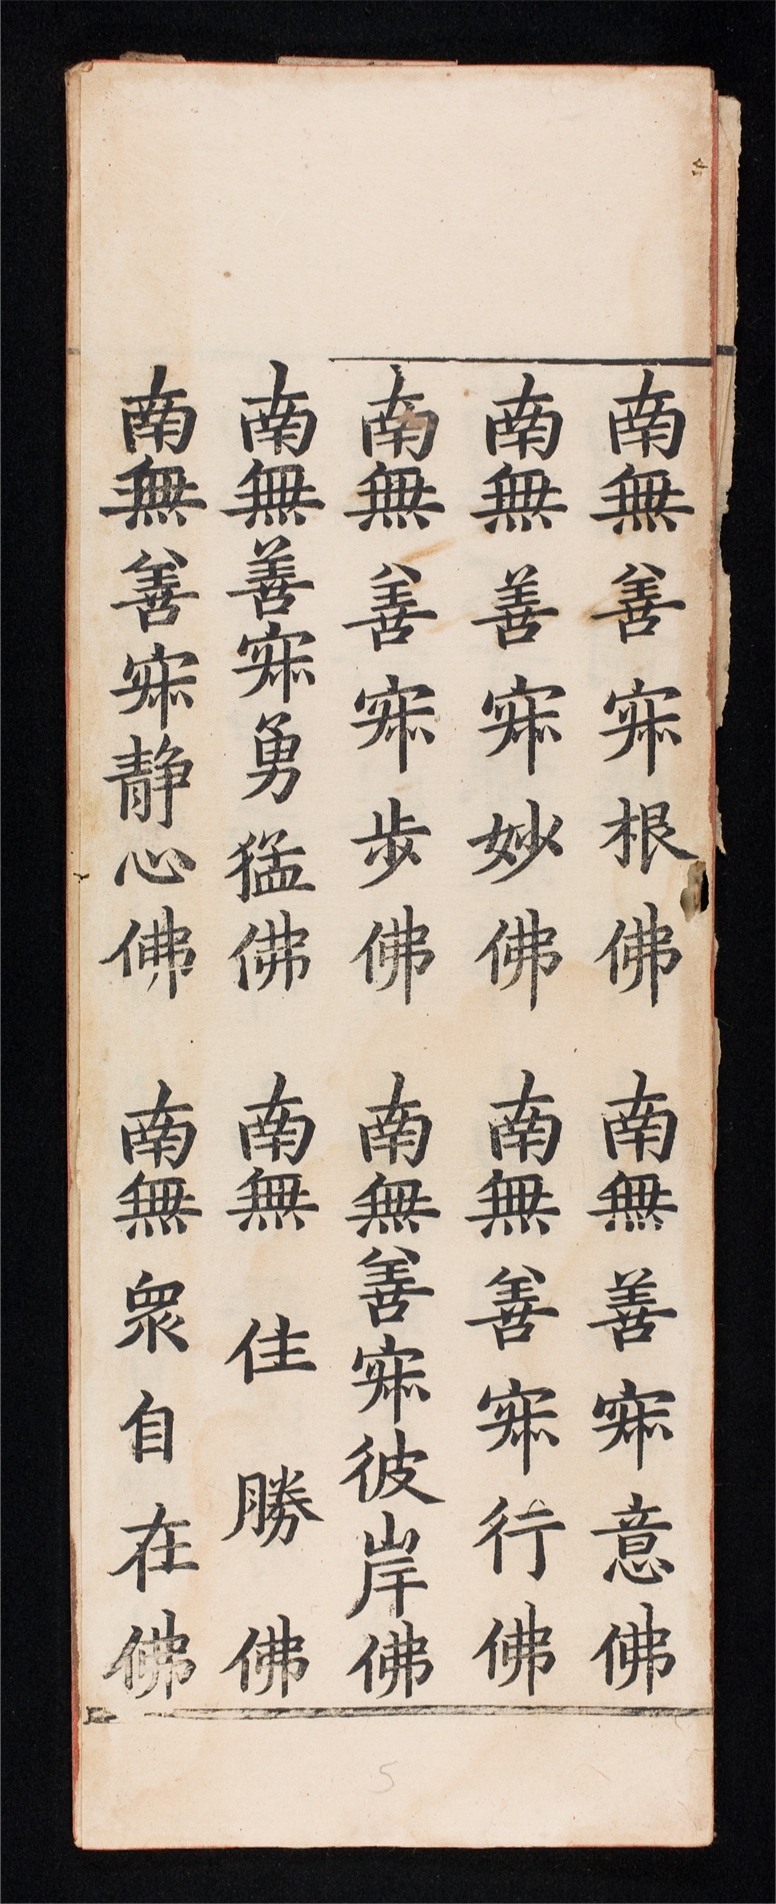 南無善寂根佛　南無善寂意佛
南無善寂妙佛　南無善寂行佛
南無善寂歩佛　南無善寂彼岸佛
南無善寂勇猛佛　南無住勝佛
南無善寂静心佛　南無眾自在佛
5